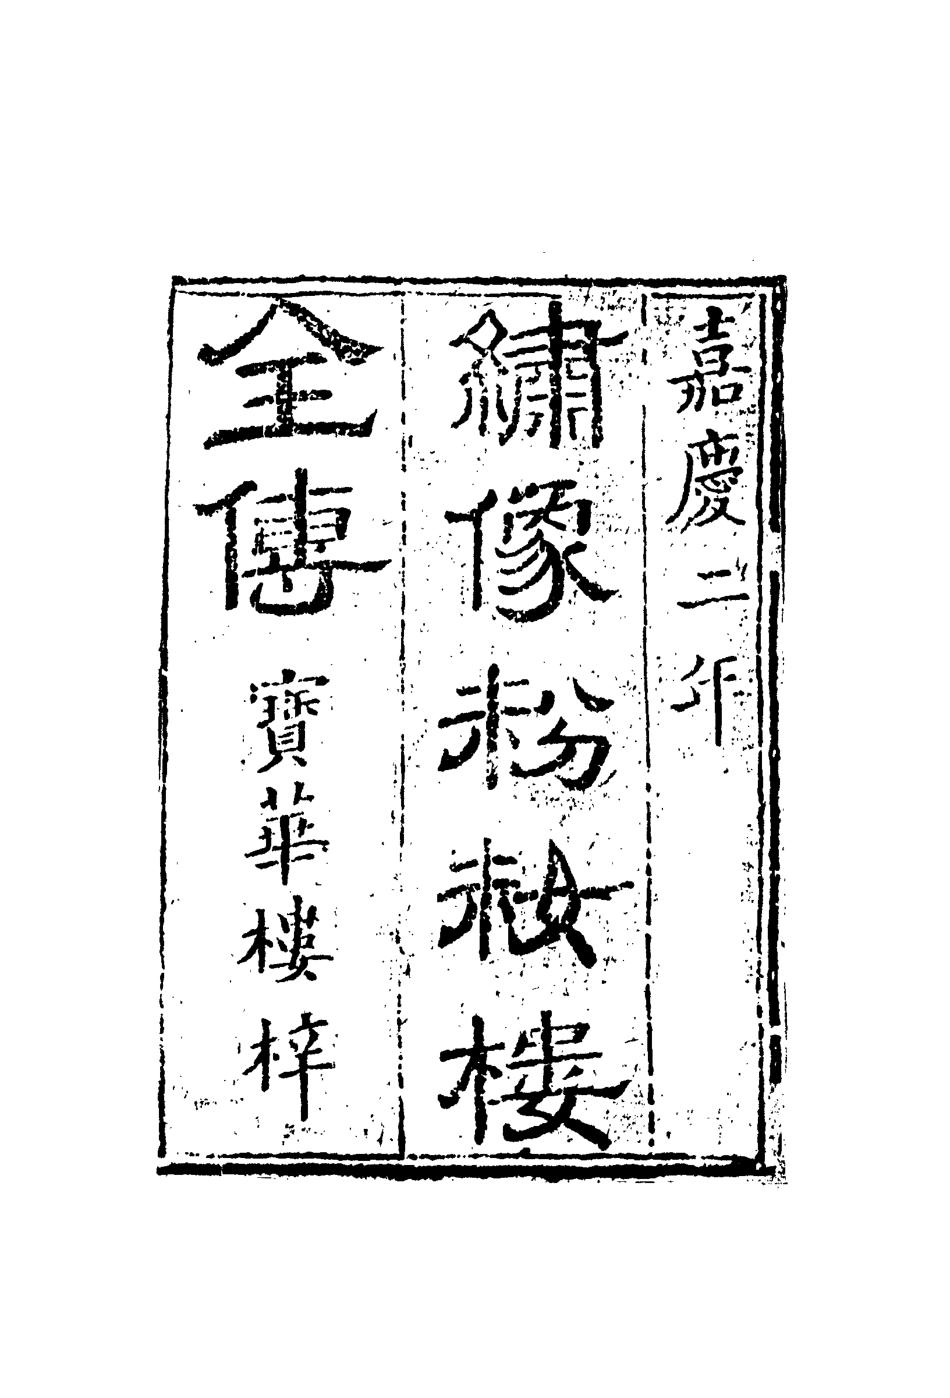 嘉慶二年
繡像粉妝樓
全傳
寶華樓梓